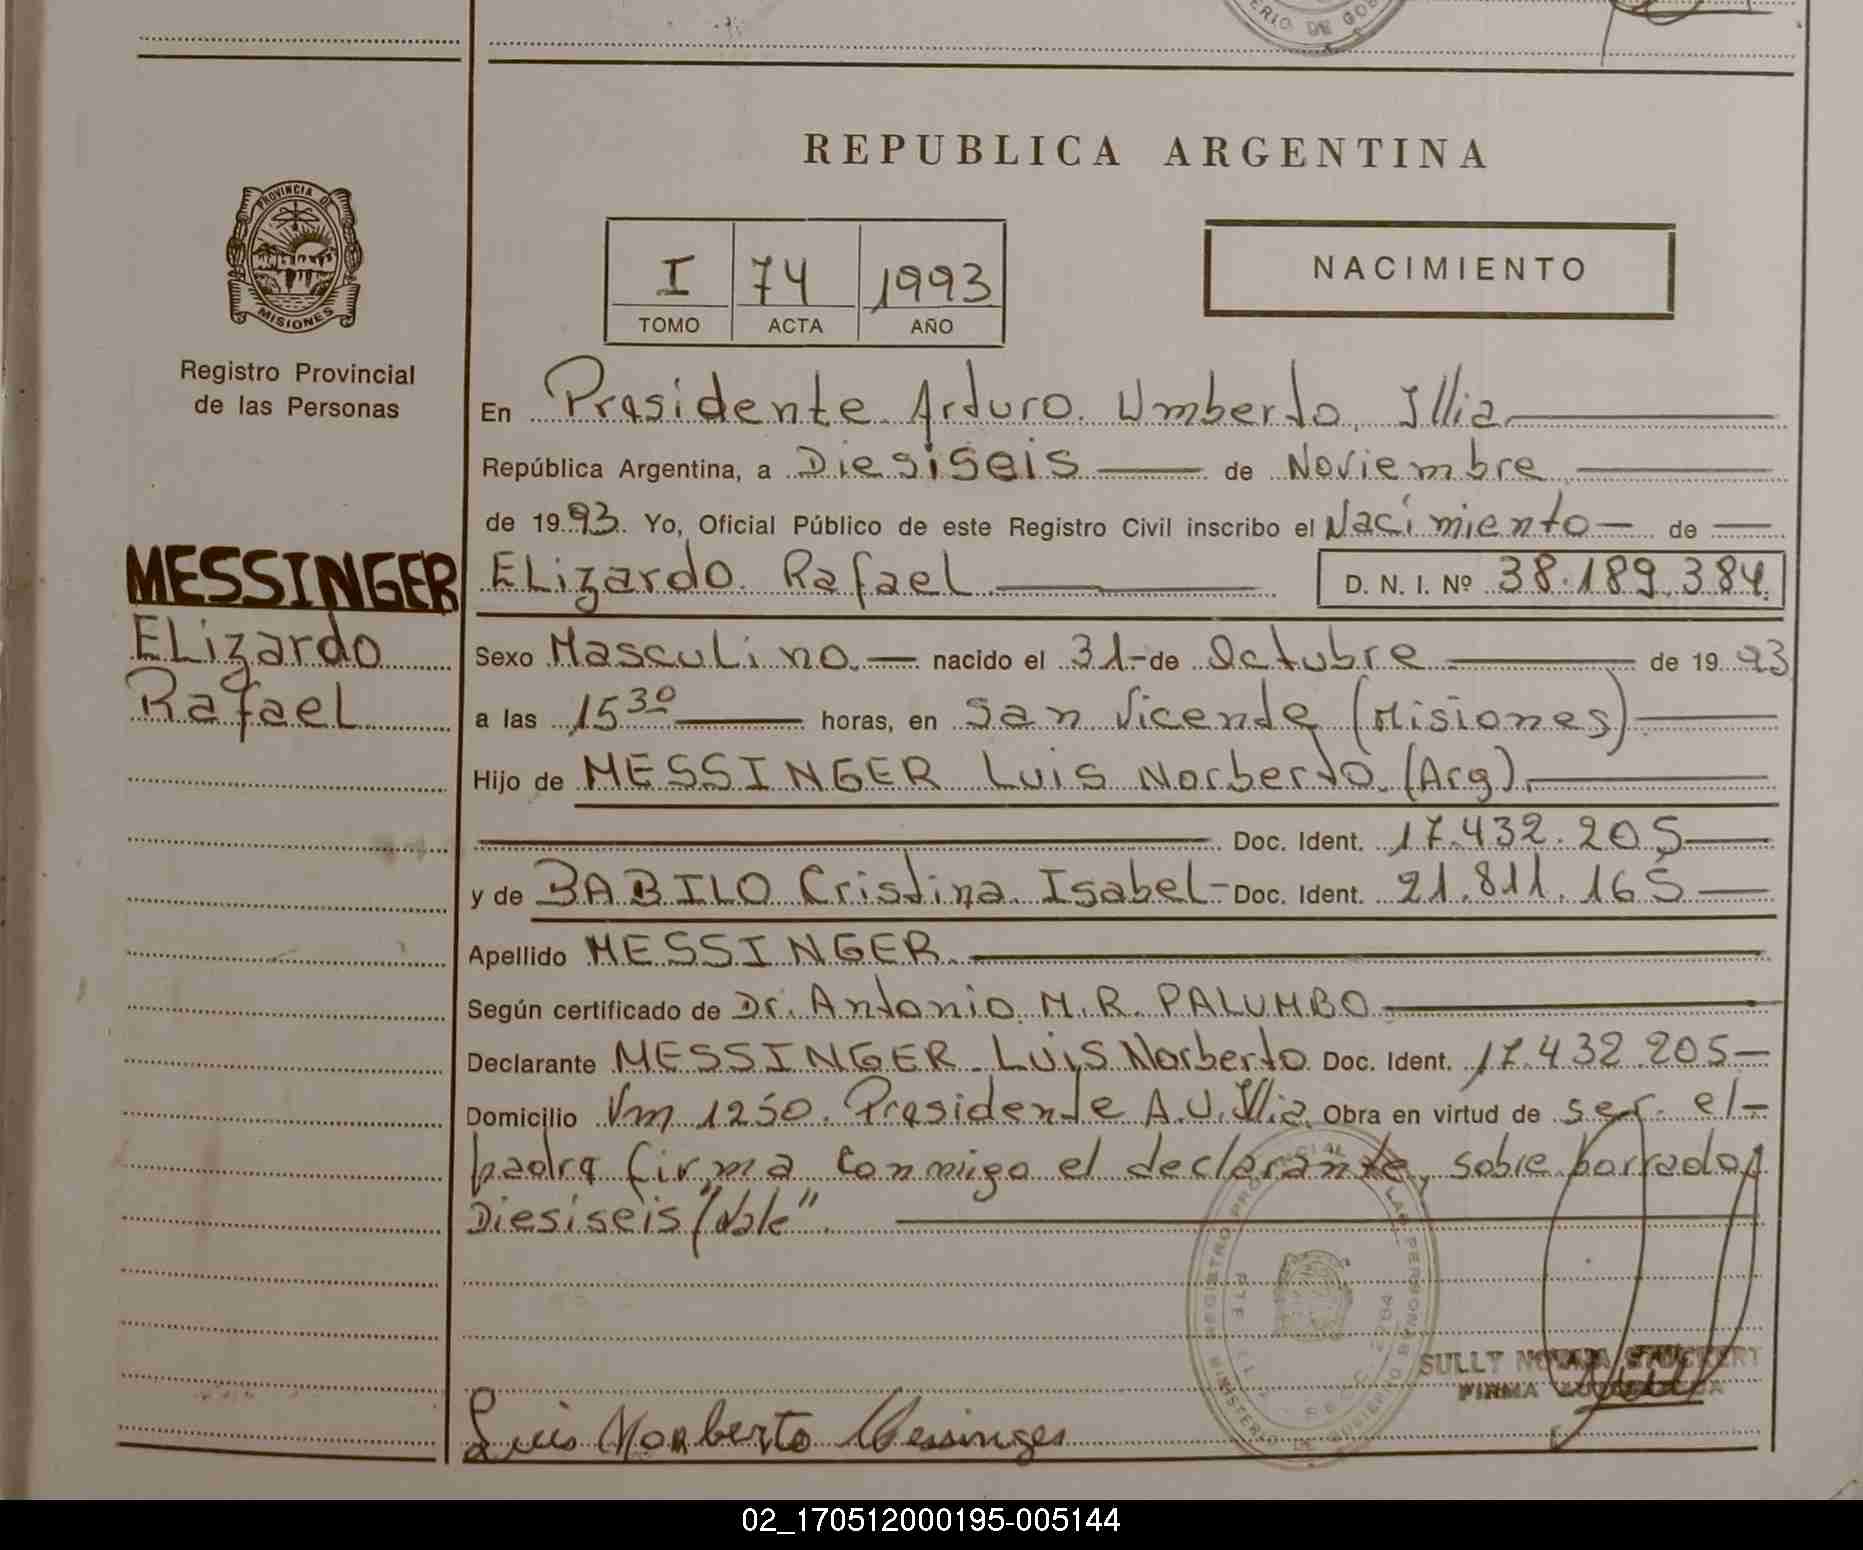 ERIO DE GOB
REPUBLICA ARGENTINA
PROVINCIA DE
MISIONES
I 74 1993
TOMO ACTA AÑO
NACIMIENTO
Registro Provincial
de las Personas
En Presidente Arturo Umberto Illia
República Argentina, a Diesiseis de Noviembre
de 1993 Yo, Oficial Público de este Registro Civil inscribo el Nacimiento de
MESSINGER
Elizardo
Rafael
Elizardo Rafael D. N. I. Nº 38.189.384
Sexo Masculino nacido el 31 de Octubre de 1993
a las 15 30 horas, en San Vicente (Misiones)
Hijo de MESSINGER Luis Norberto (Arg)
Doc. Ident. 17.432.205
y de BABILO Cristina Isabel - Doc. Ident. 21.811.165
Apellido MESSINGER
Según certificado de Dr. Antonio M.R. PALUMBO
Declarante MESSINGER Luis Norberto Doc. Ident. 17.432.205
Domicilio Vm 1250. Presidente A.U. Illia Obra en virtud de ser el
padre firma conmigo el declarante, sobre borrado
Diesiseis "vale".
SULLY
FIRMA
Luis Norberto Messinger
02_170512000195-005144